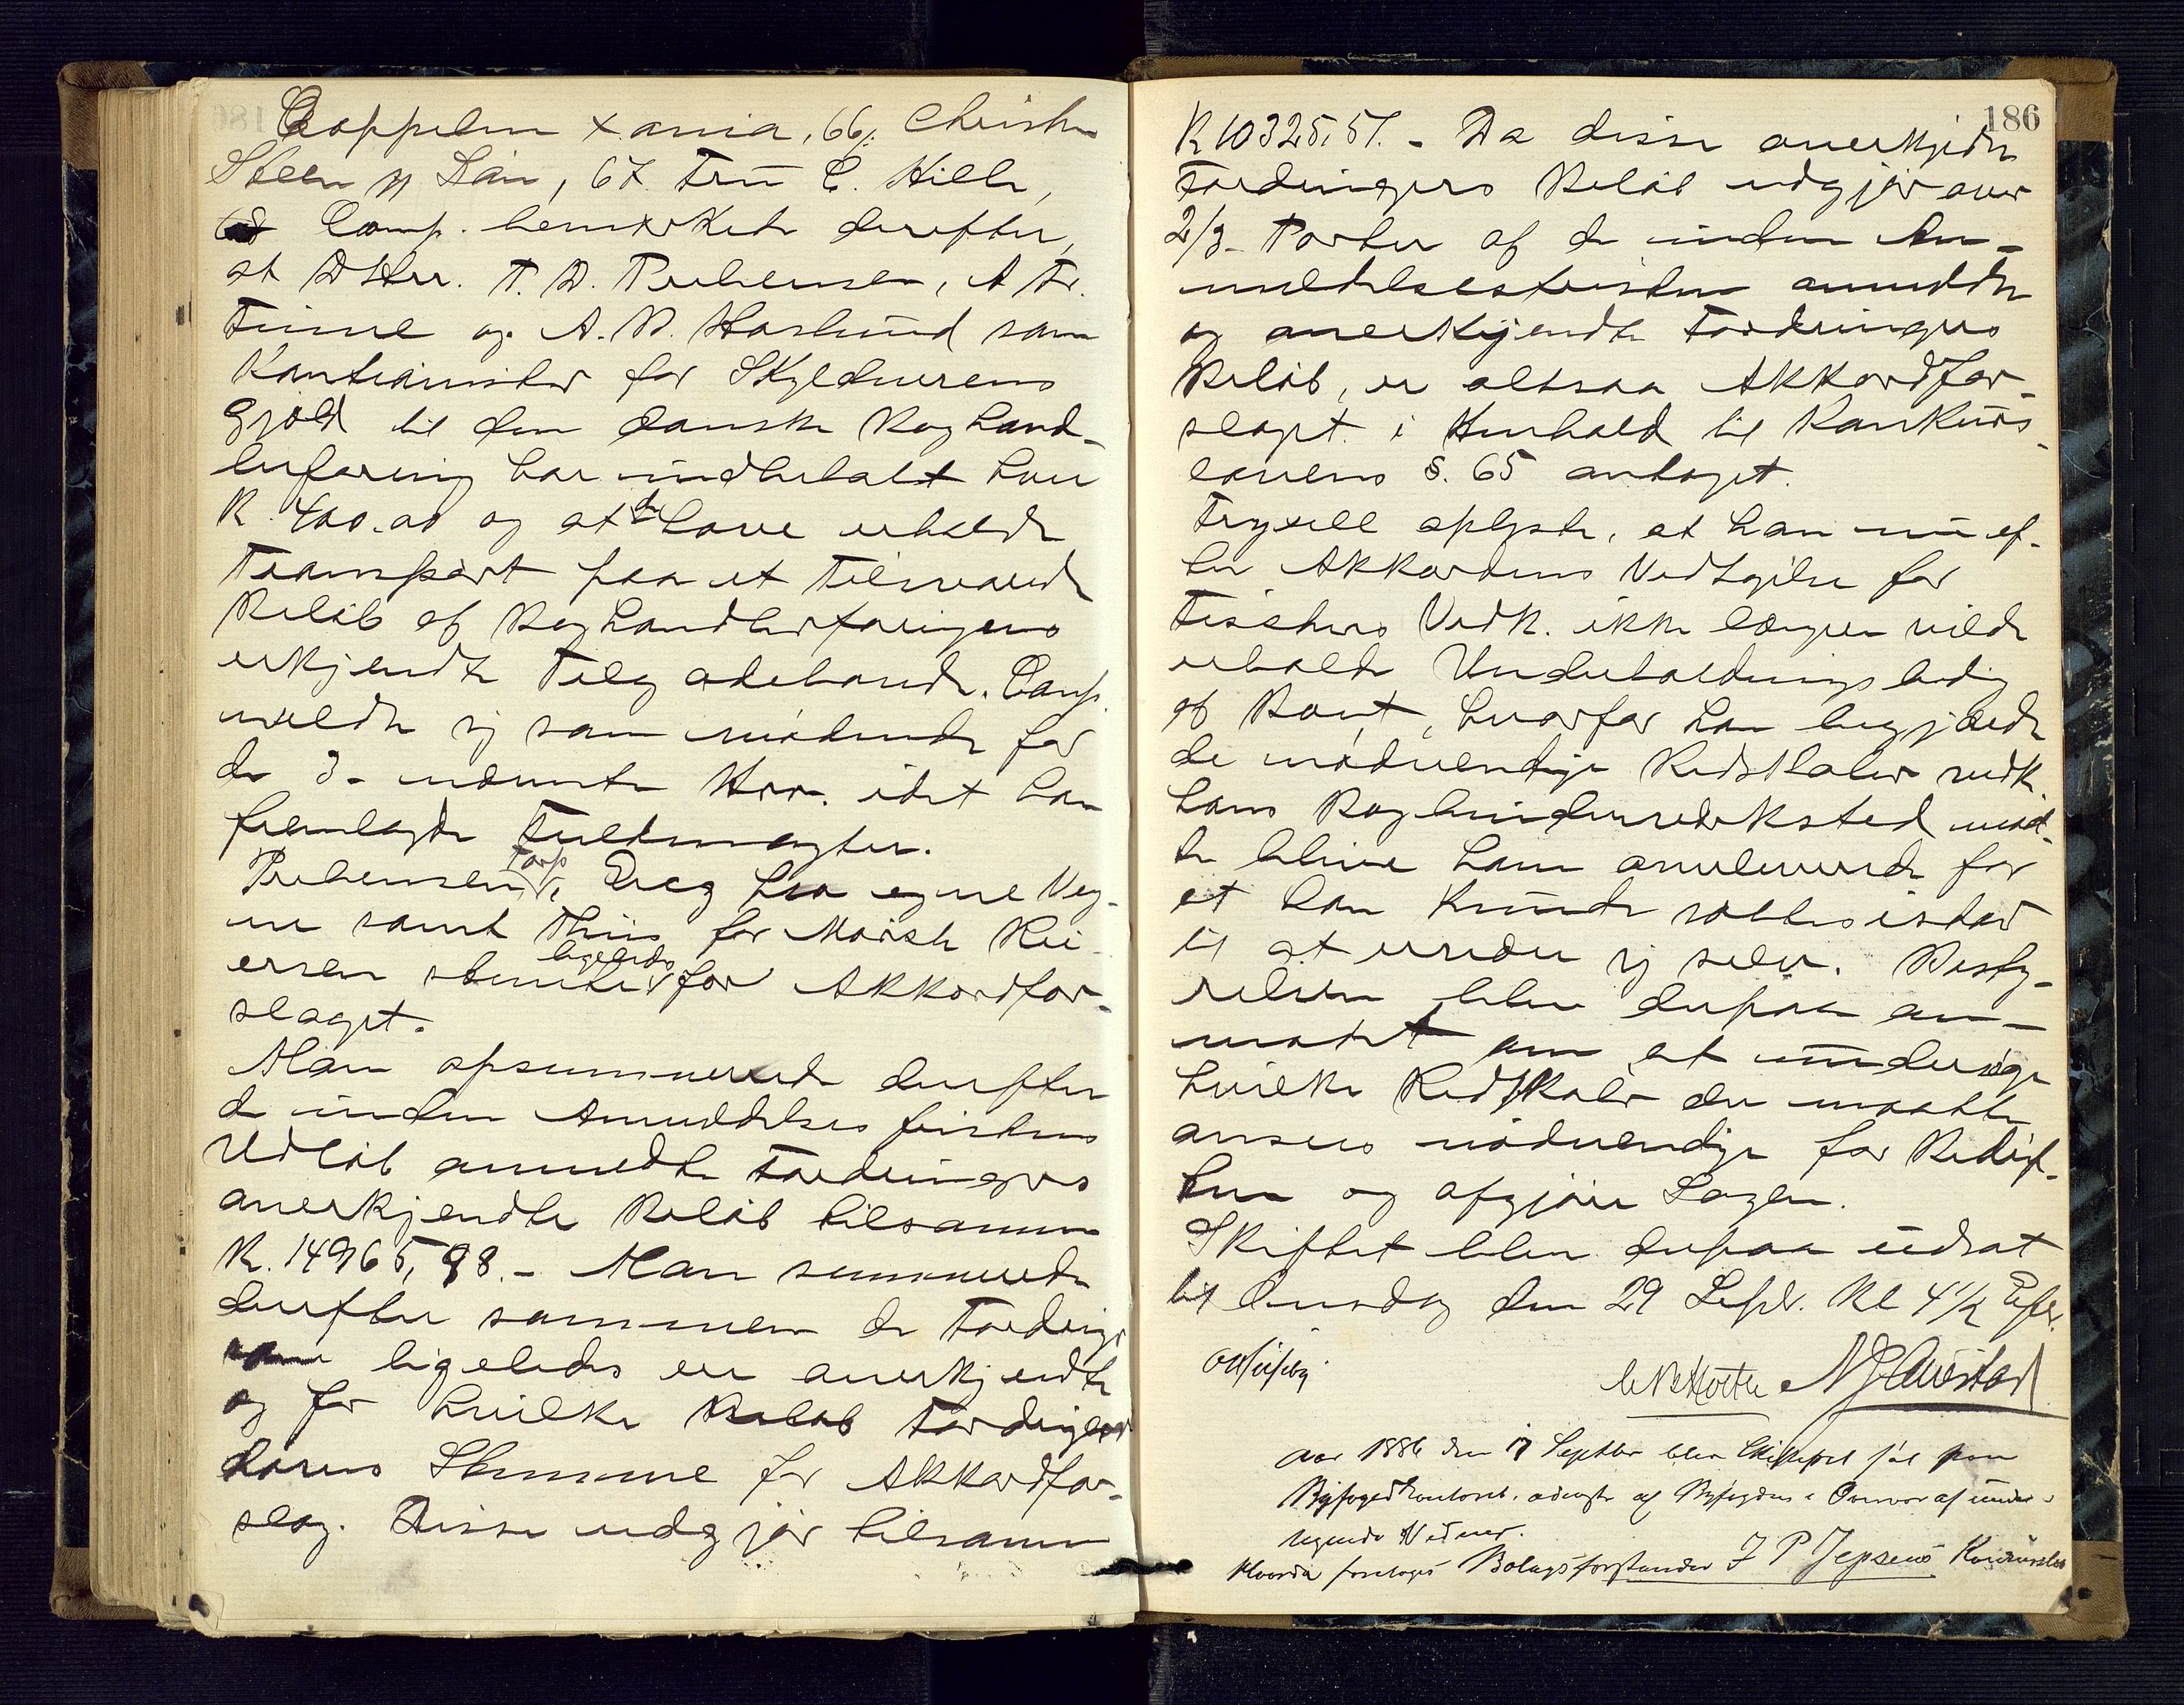 Coppelen Xania, 66/. Christen
Steen & Søn, 67. Fru C. Hille,
Comp. bemærkede derefter,
at DHrr. T. D. Prebensen, A Fr.
Finne og A. B. Haslund som
Kautionister for Skyldnerens
Gjæld til den danske Boghand-
lerforening har indbetalt hver
K. 400.00 og at de have erholdt
Transport paa et tilsvarende
Beløb af Boghandlerforeningens
erkjendte Tilgodehavende. Comp.
meldte sig som mødende for
de 3 - nævnte Hrr. idet han
fremlagde Fuldmagter.
Prebensen, Torp, Dreg paa egne Veg-
ne samt Thiis for Marsk Rei-
ersen stemte ligeledes for Akkordfor-
slaget.
Man opsummerede derefter
de inden Anmeldelses fristens
Udløb anmeldte Fordringers
anerkjendte Beløb tilsammen
K. 14965,98. - Man summerede
derefter sammen de Fordringer
som ligeledes ere anerkjendte
og for hvilke Beløb Fordrings-
havens Stemme for Akkordfor-
slag. Disse udgjør tilsammen
186
K 10325,57. - Da disse anerkjendte
Fordringers Beløb udgjør over
2/3 - Parter af de inden An-
meldelsesfristen anmeldte
og anerkjendte Fordringers
Beløb, er altsaa Akkordfor-
slaget i Henhold til Konkurs-
lovens §. 65 antaget.
Trysell oplyste, at han nu ef-
ter Akkordens Vedtagelse for
Fischers Vedk. ikke længere vilde
erholde Underholdningsbidrag
af Boet, hvorfor han begjærede
de nødvendige Redskaber vedk.
hans Bogbinderverksted maat-
te blive ham overleverede for
at han kunde sættes istand
til at ernære sig selv. Besty-
relsen blev derpaa an-
modet om at undersøge
hvilke Redskaber der maatte
ansees nødvendige for Bedrif-
ten og afgjøre Sagen.
Skiftet blev derpaa udsat
til Onsdag den 29 Septr. Kl 4 1/2 Efter.
Aar 1886 den 17 Septbr blev Skifteret sat paa
Byfogedkontoret, administ af Byfogden i Overvær af under-
tegnede Vidner.
Hvorda foretoges Bolagsforstander J P Jepsens Konkursbo